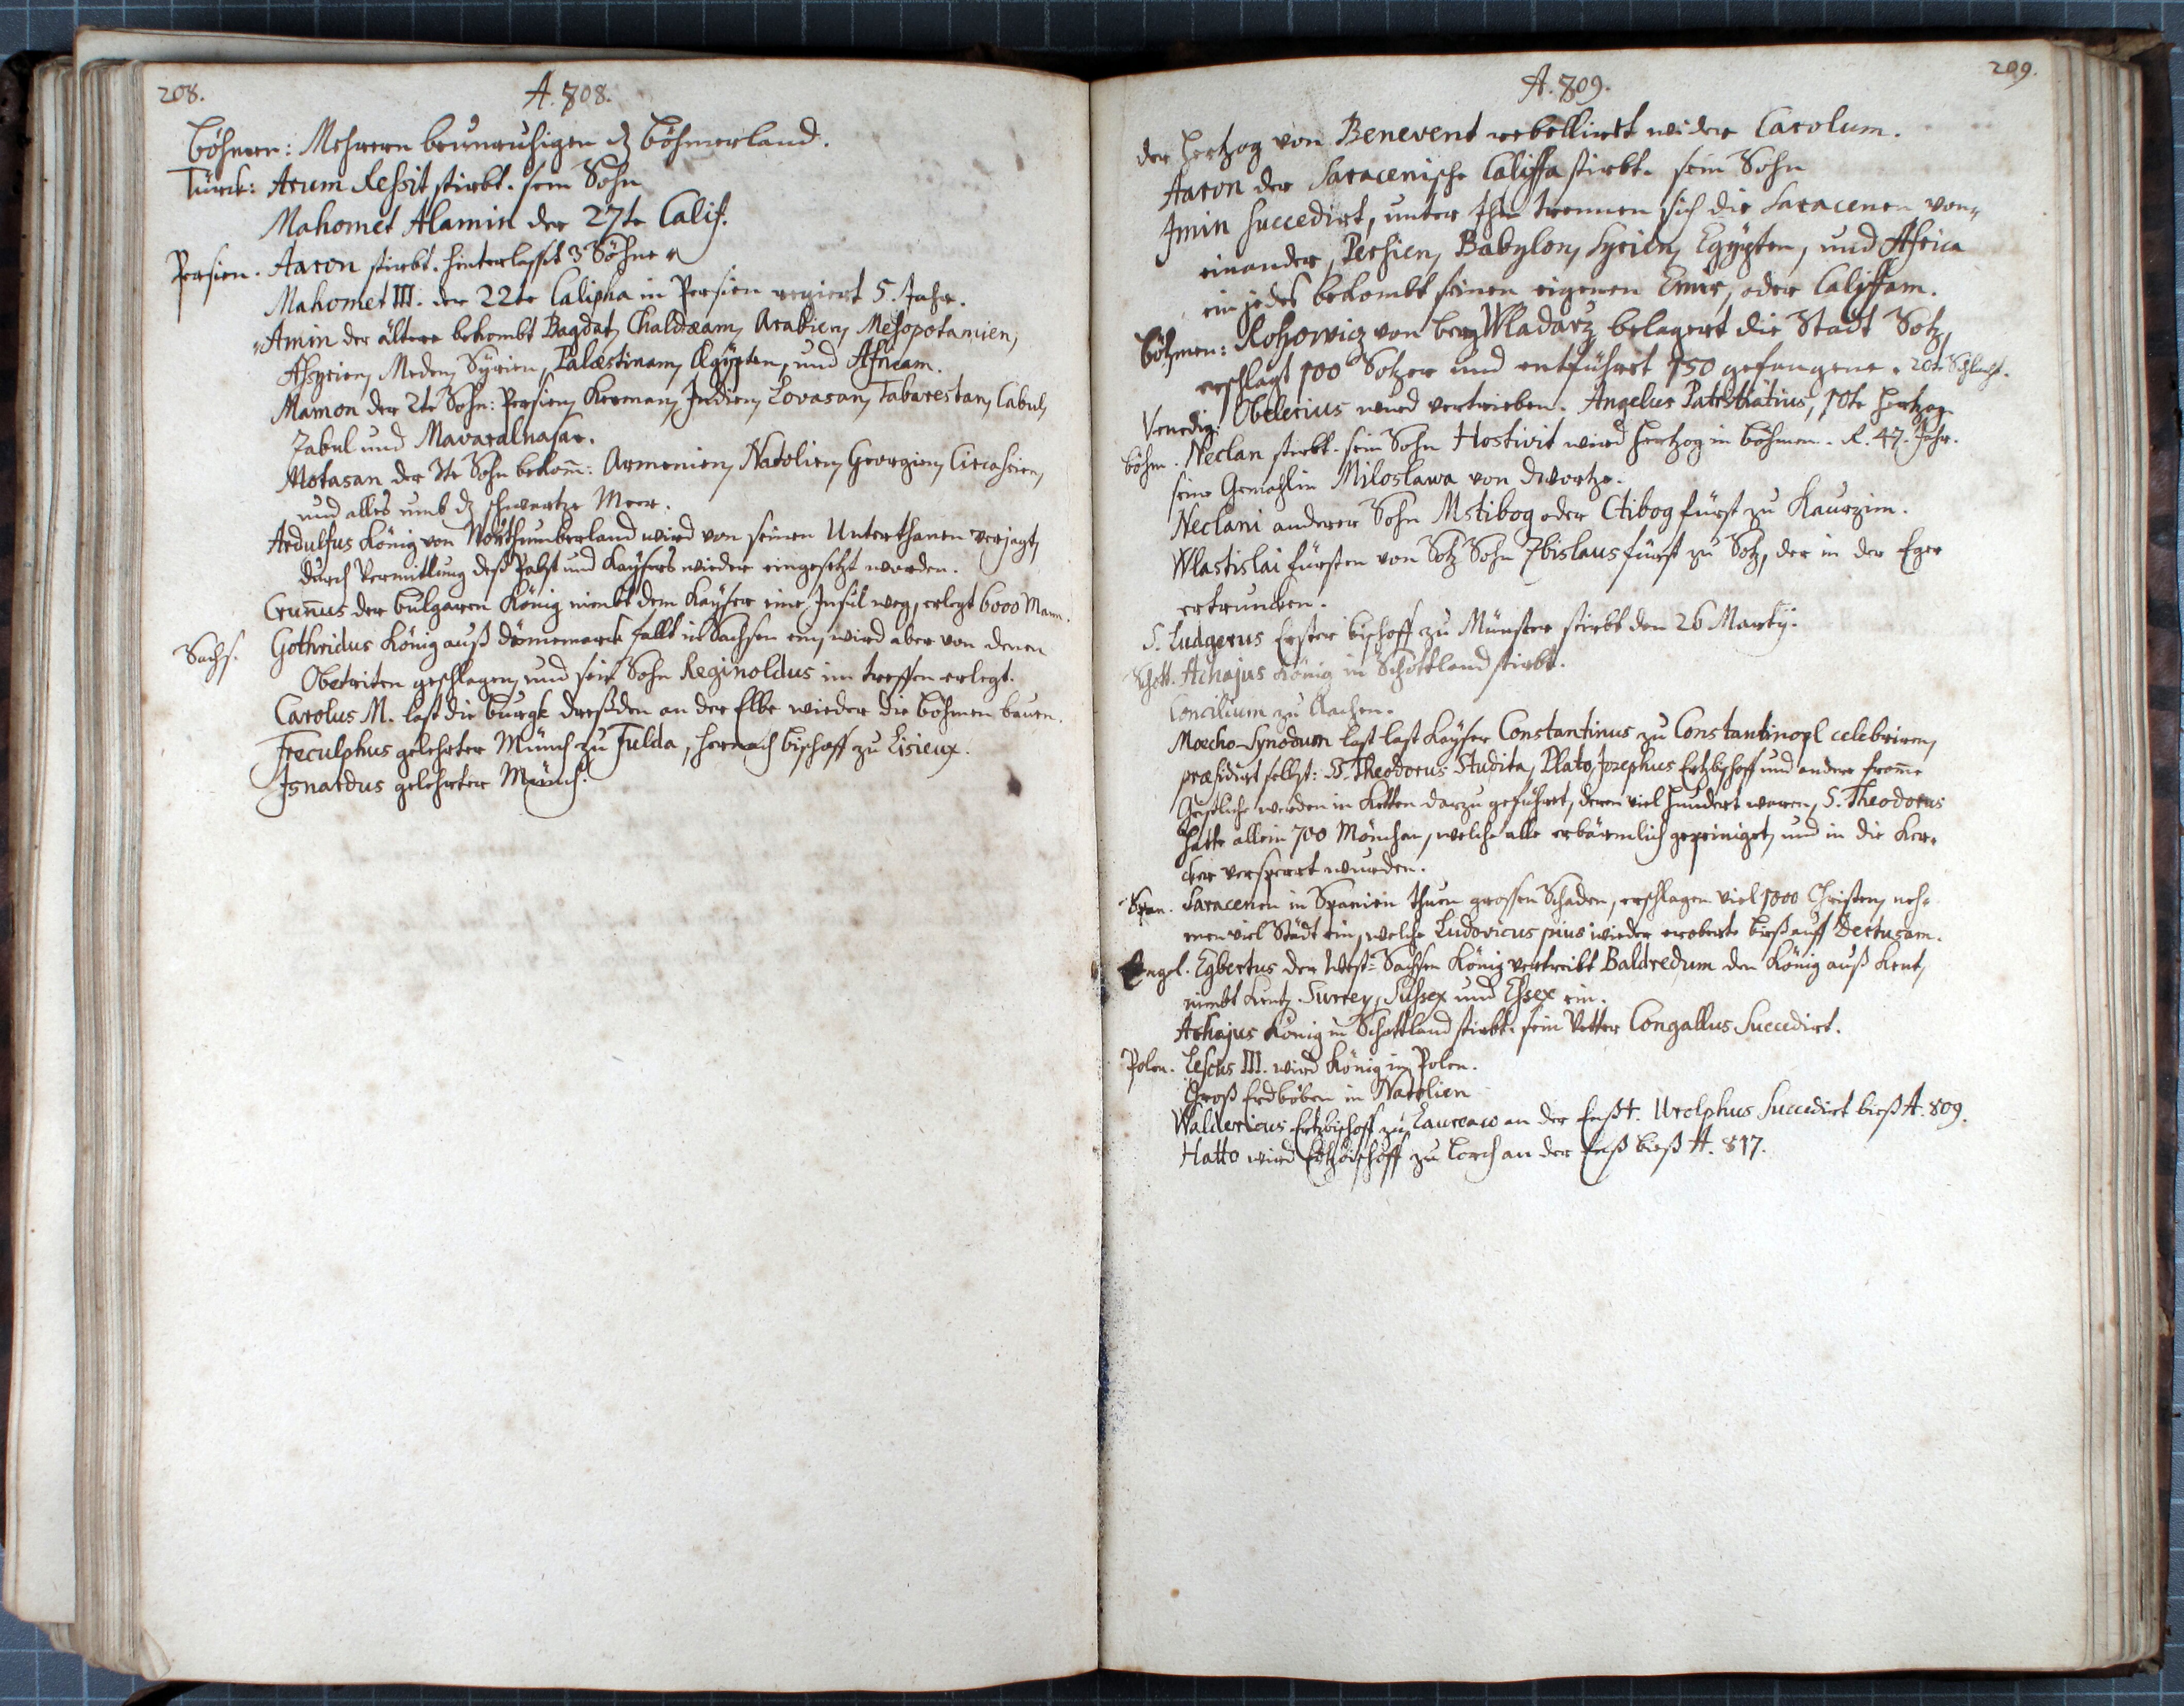 208.
A. 808.
Böhmen: Mehrern beunruhigen dz Böhmerland.
Türck: Arum Reßit stirbt. sein Sohn
Mahomet Alamin der 27te Calif.
Persien. Aaron stirbt. hinterlasst 3 Söhne
Mahomet III. der 22te Calipha in Persien regiert 5. Jahr.
Amin der ältere bekombt Bagdat, Chaldæam, Arabien, Mesopotamien,
Assyrien, Meden, Syrien, Palæstinam, Ægypten, und Africam.
Mamon der 2te Sohn: Persien, Kerman, Indien, Lovasan, Tabarestan, Cabul,
Zabul und Mavaralnasar.
Motasan der 3te Sohn bekom̃: Armenien, Natolien, Georgien, Circassien,
und alles umb dz schwartze Meer.
Ardulfus König von Northumberland wird von seinen Unterthanen verjagt,
durch Vermitlung deß Pabst und Kaysers wieder eingesetzt worden.
Crun̄us der Bulgaren König nimbt dem Kayser eine Insul weg, erlegt 6000 Mann.
Sachs. Gothridus König auß Dännemarck fallt in Sachsen ein, wird aber von denen
Obetriten geschlagen, und sein Sohn Reginoldus im treffen erlegt.
Carolus M. last die Burgk Dreßden an der Elbe wieder die Böhmen bauen.
Freculphus gelehrter Münch zu Fulda, hernach Bischoff zu Lisieux.
Isnardus gelehrter Münch.
209.
A. 809.
der Hertzog von Benevent rebellirt wider Carolum.
Aaron der Saracenische Califfa stirbt. sein Sohn
Imin succedirt, unter Ihm trennen sich die Saracenen von
einander, Persien, Babylon, Syrien, Egypten, und Africa
ein jedes bekombt seinen eigenen Emir, oder Califfam.
Böhmen: Rohowicz von berg Wladarz belagert die Stadt Sotz,
erschlagt 100 Sotzer und entführt 150 gefangene. 20te Schlacht.
Venedig: Obelerius wird vertrieben. Angelus Patritiatius, 10te Hertzog.
Böhm. Neclan stirbt. sein Sohn Hostivit wird Hertzog in Böhmen. R. 47. Jahr.
seine Gemahlin Miloslawa von Dwortze.
Neclani anderer Sohn Mstibog oder Ctibog fürst zu Kaurzim.
Wlastislai fürsten von Sotz Sohn Zbislaus fürst zu Sotz, der in der Eger
ertrunken.
S. Ludgerus Erster bischoff zu Münster stirbt den 26 Martij.
Schott. Achajus König in Schottland stirbt.
Concilium zu Aachen.
Mœcho-Synodum last last Kayser Constantinus zu Constantinopl celebriren,
præsidirt selbst: S. Theodorus Studita, Plato, Josephus Ertzbischoff und andere from̄e
Geistliche werden in Ketten darzu geführt, deren viel hundert waren, S. Theodorus
hatte allein 700 Mönchen, welche alle erbärmlich gepeiniget, und in die Ker-
cker versperrt wurden.
Span. Saracenen in Spanien thuen grossen Schaden, erschlagen viel 1000 Christen, neh-
men viel Städt ein, welche Ludovicus pius wieder eroberte bieß auff Dertusam.
Engel. Egbertus der West-Sachsen König vertreibt Baldredum den König auß Kent,
nimbt Kent, Surrey, Sussex und Essex ein.
Achajus König in Schottland stirbt. sein Vetter Congallus succedirt.
Polen. Lescus III. wird König in Polen.
Groß Erdböben in Natolien
Waldericus Ertzbischoff zu Laureaco an der Enß †. Urolphus succedirt bieß A. 809.
Hatto wird Ertzbischoff zu Lorch an der Enß bieß A. 817.